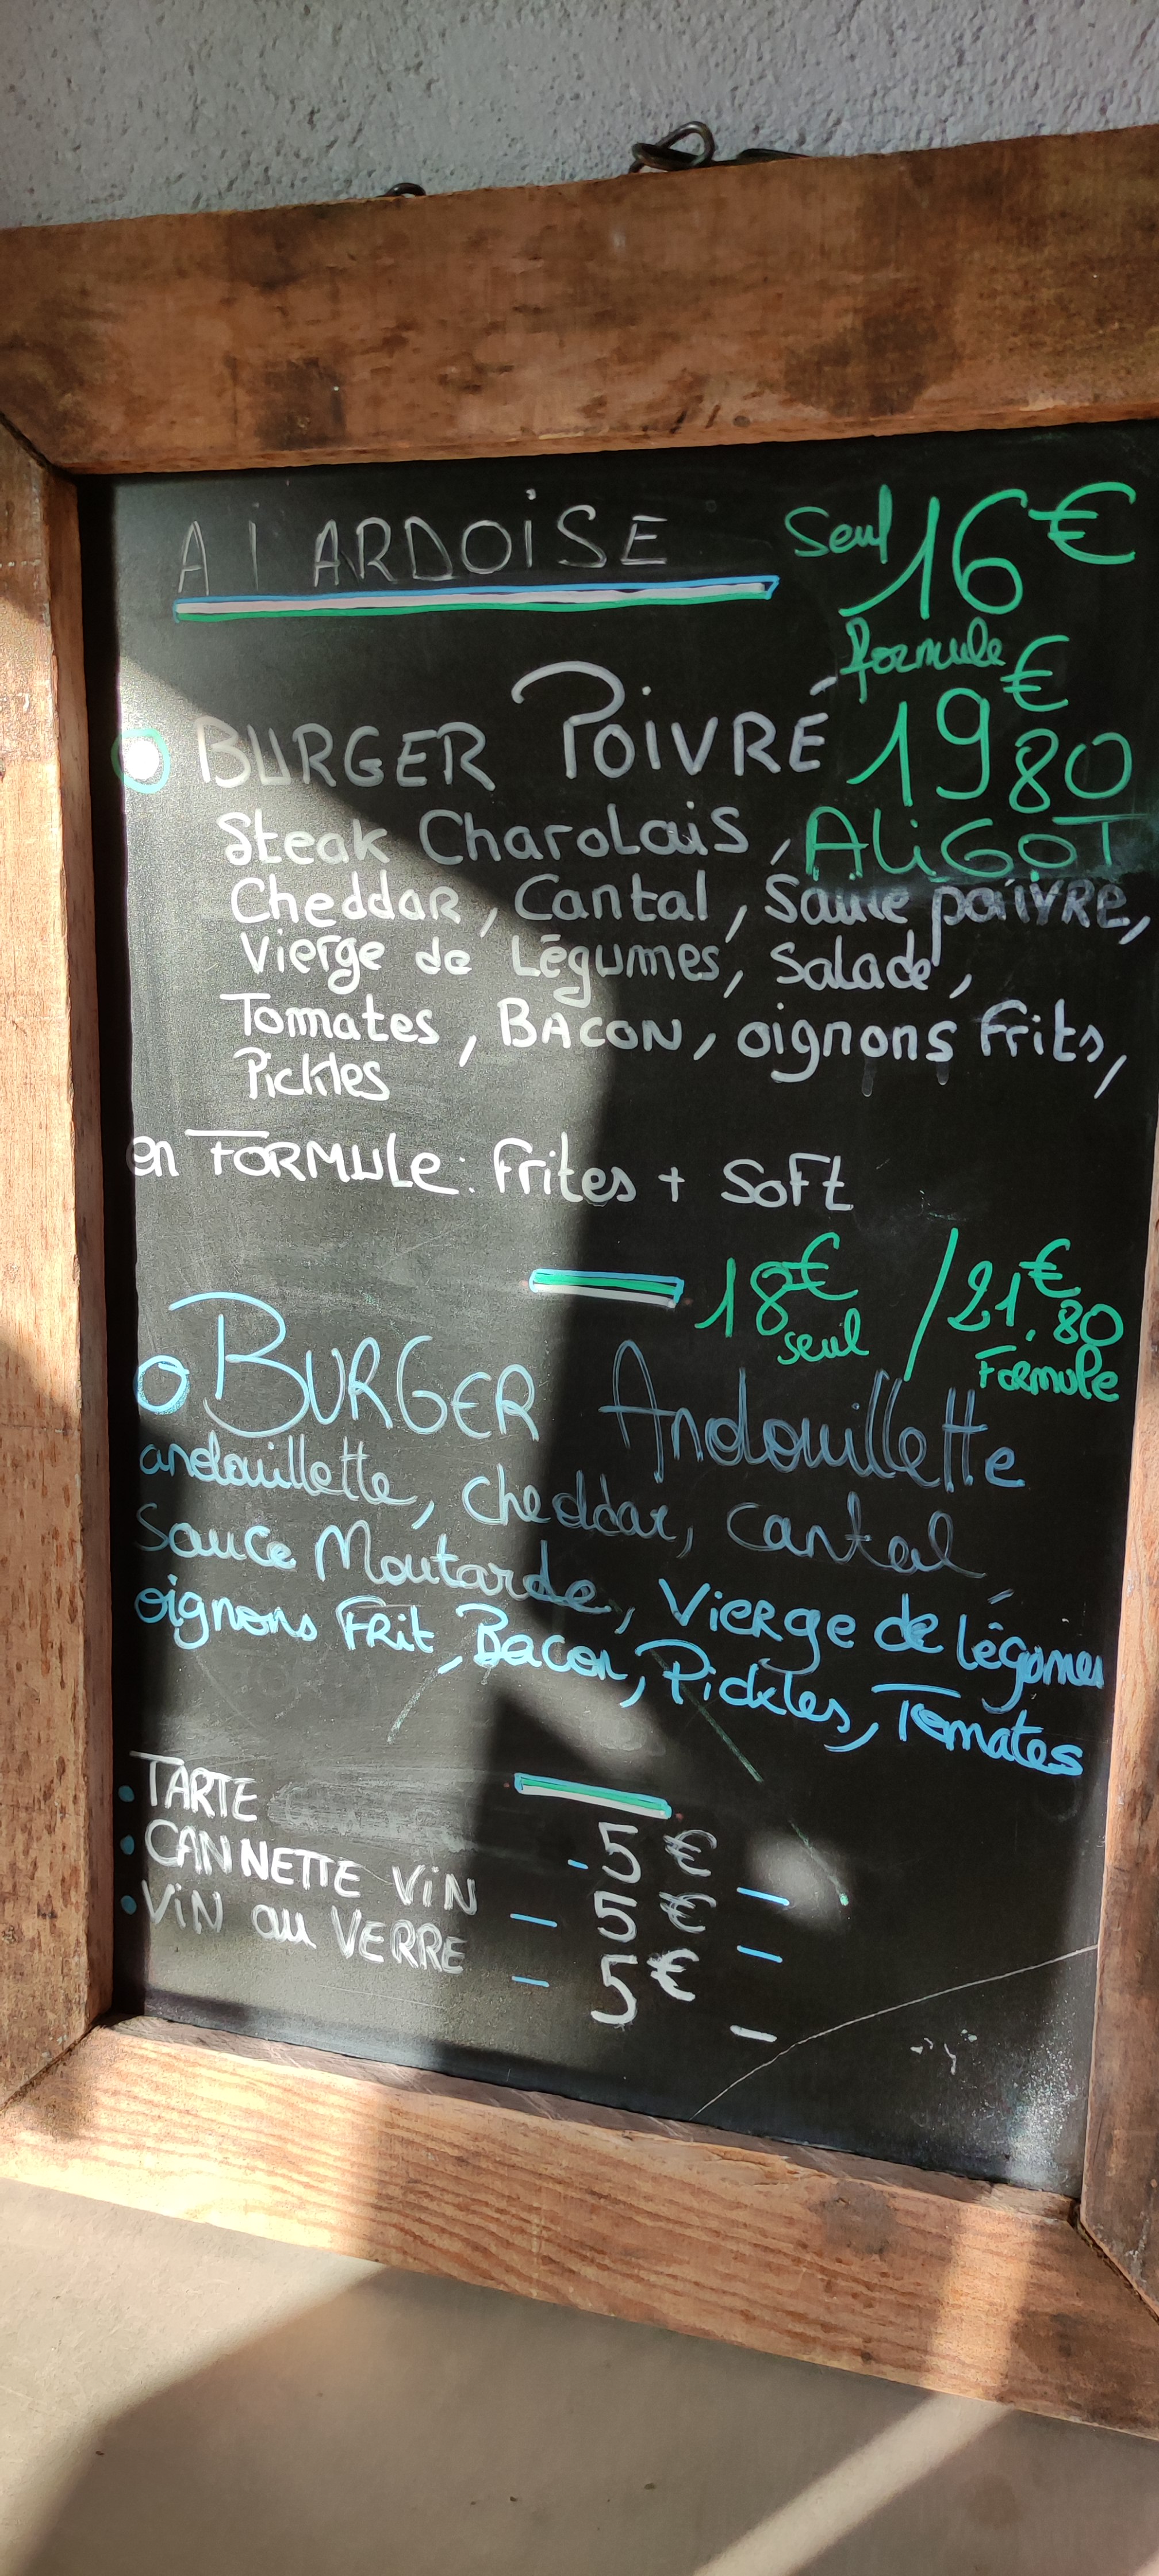 A l ARDOISE
Seul 16€
formule
BURGER POIVRÉ 19€80
Steak Charolais, ALiGOT
Cheddar, Cantal, Sauce poivre,
Vierge de Légumes, Salade,
Tomates, BACON, oignons frits,
Pickles
en FORMULE: Frites + SoFt
18€ seul / 21€.80 Formule
BURGER Andouillette
andouillette, cheddar, cantal,
Sauce Moutarde, Vierge de légumes
oignons Frit, Bacon, Pickles, Tomates
TARTE - 5 € -
CANNETTE ViN - 5 € -
ViN au VERRE - 5€ -